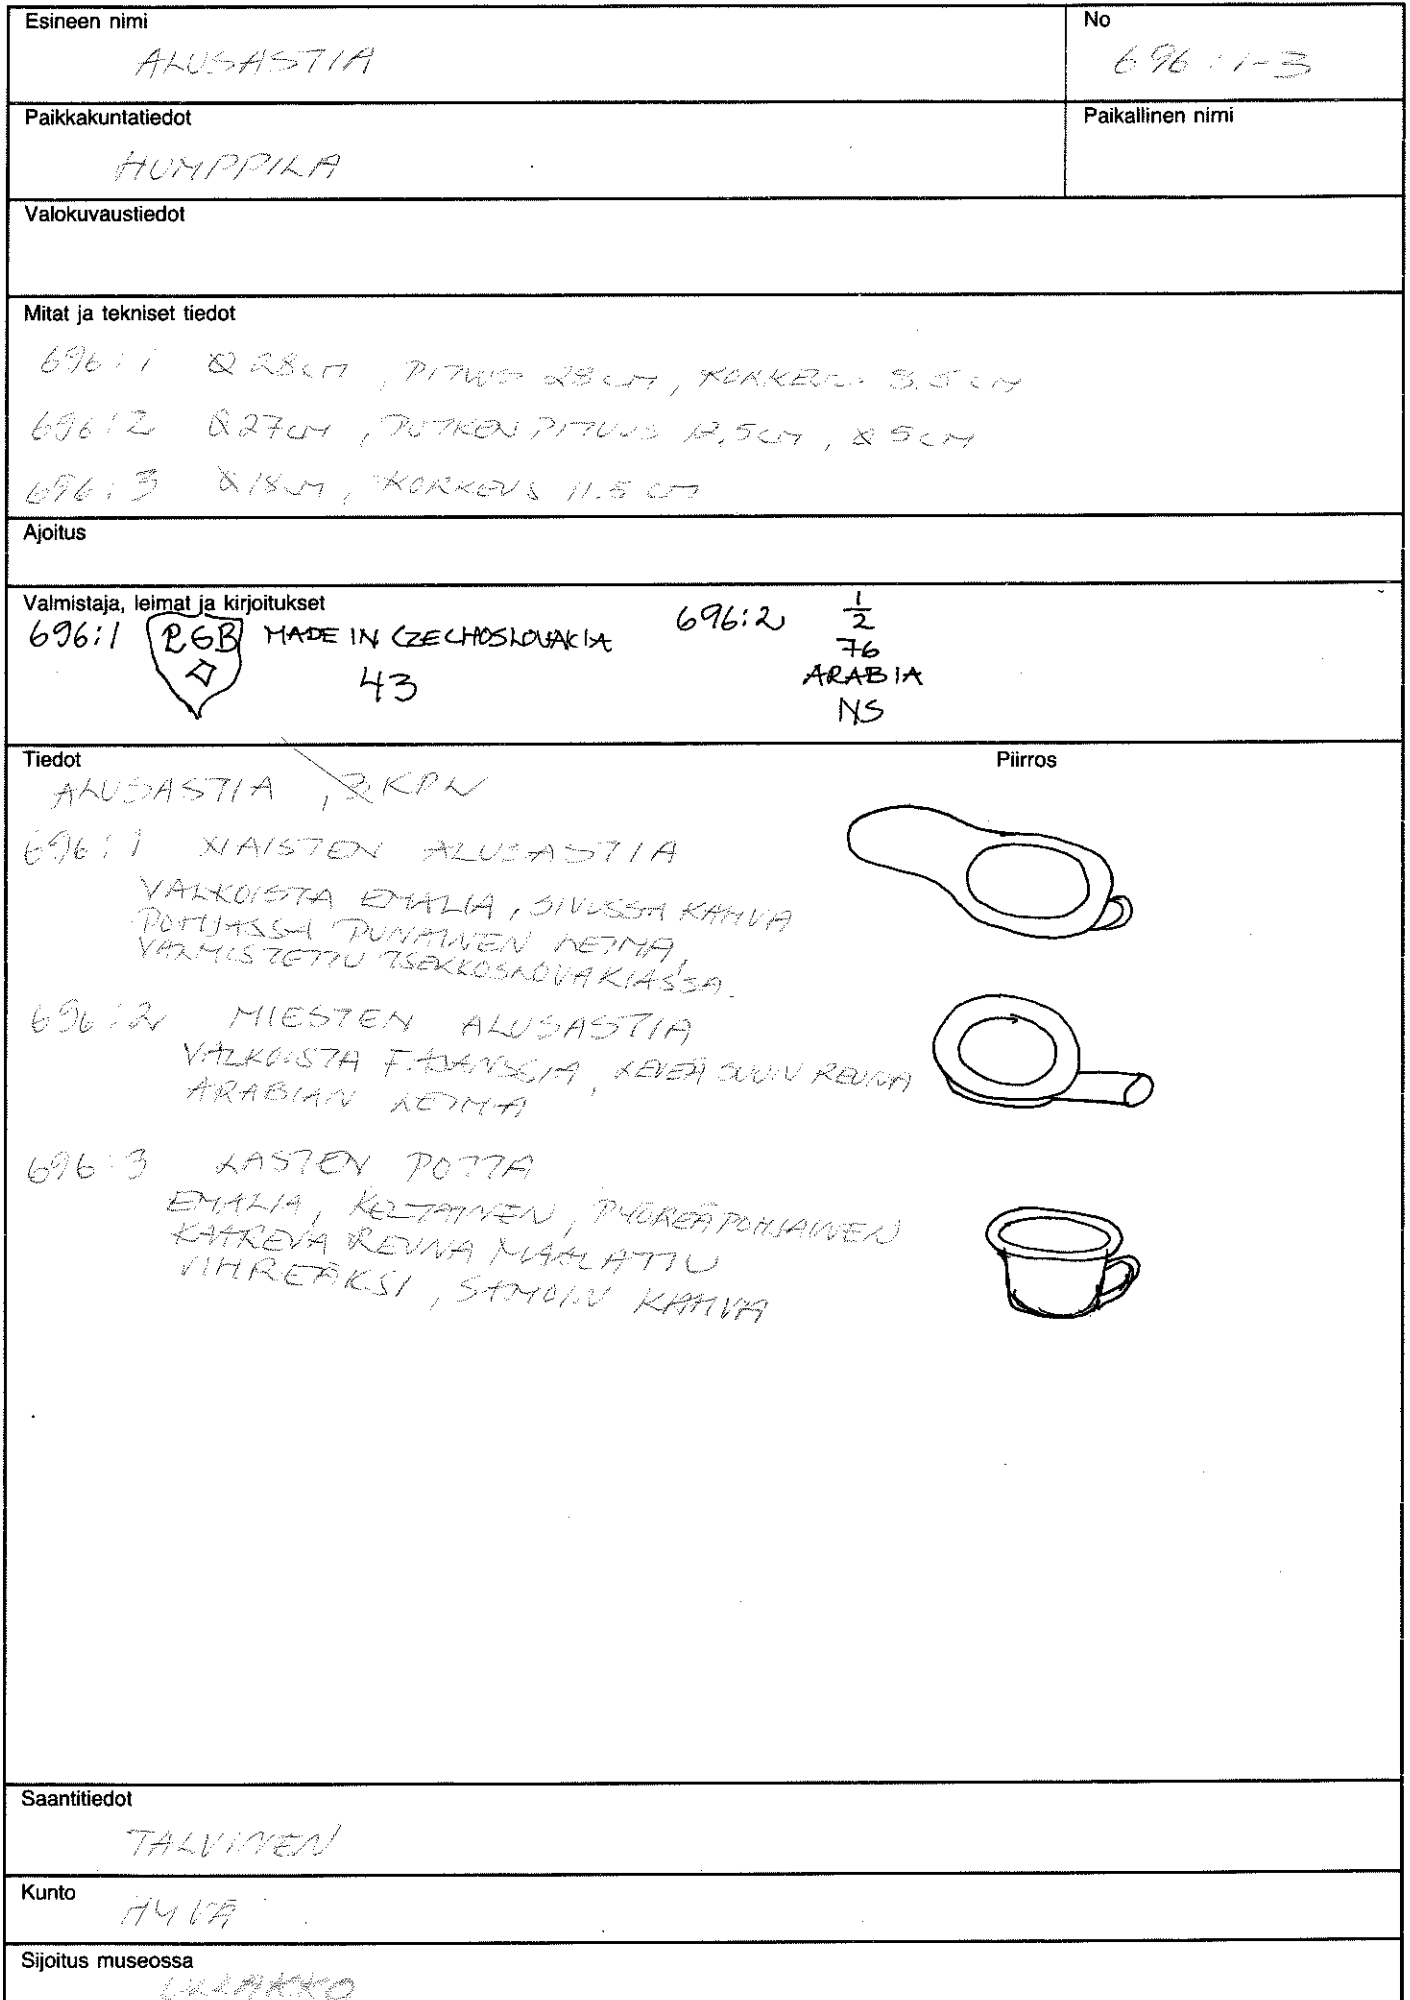 Esineen nimi
ALUSASTIA
No
696:1-3
Paikkakuntatiedot
HUMPPILA
Paikallinen nimi
Valokuvaustiedot
Mitat ja tekniset tiedot
696:1 Ø 28cm, PITUUS 28 CM, KORKEUS 8.5 CM
696:2 Ø27cm, PUTKEN PITUUS 12,5cm, Ø 5CM
696:3 Ø18cm, KORKEUS 11.5 cm
Ajoitus
Valmistaja, leimat ja kirjoitukset
696:1 MADE IN CZECHOSLOVAKIA
43
696:2 1/2
76
ARABIA
NS
Tiedot
Piirros
ALUSASTIA, KPL
696:1 NAISTEN ALUSASTIA
VALKOISTA EMALIA, SIVUSSA KAHVA
POHJASSA PUNAINEN LEIMA,
VALMISTETTU TSEKKOSLOVAKIASSA.
696:2 MIESTEN ALUSASTIA
VALKOISTA FAJANSSIA, LEVEÄ SUUN REUNA
ARABIAN LEIMA
696:3 LASTEN POTTA
EMALIA, KELTAINEN, PYÖREÄPOHJAINEN
KAAREVA REUNA MAALATTU
VIHREÄKSI, SAMOIN KAHVA
Saantitiedot
TALVINEN
Kunto
HYVÄ
Sijoitus museossa